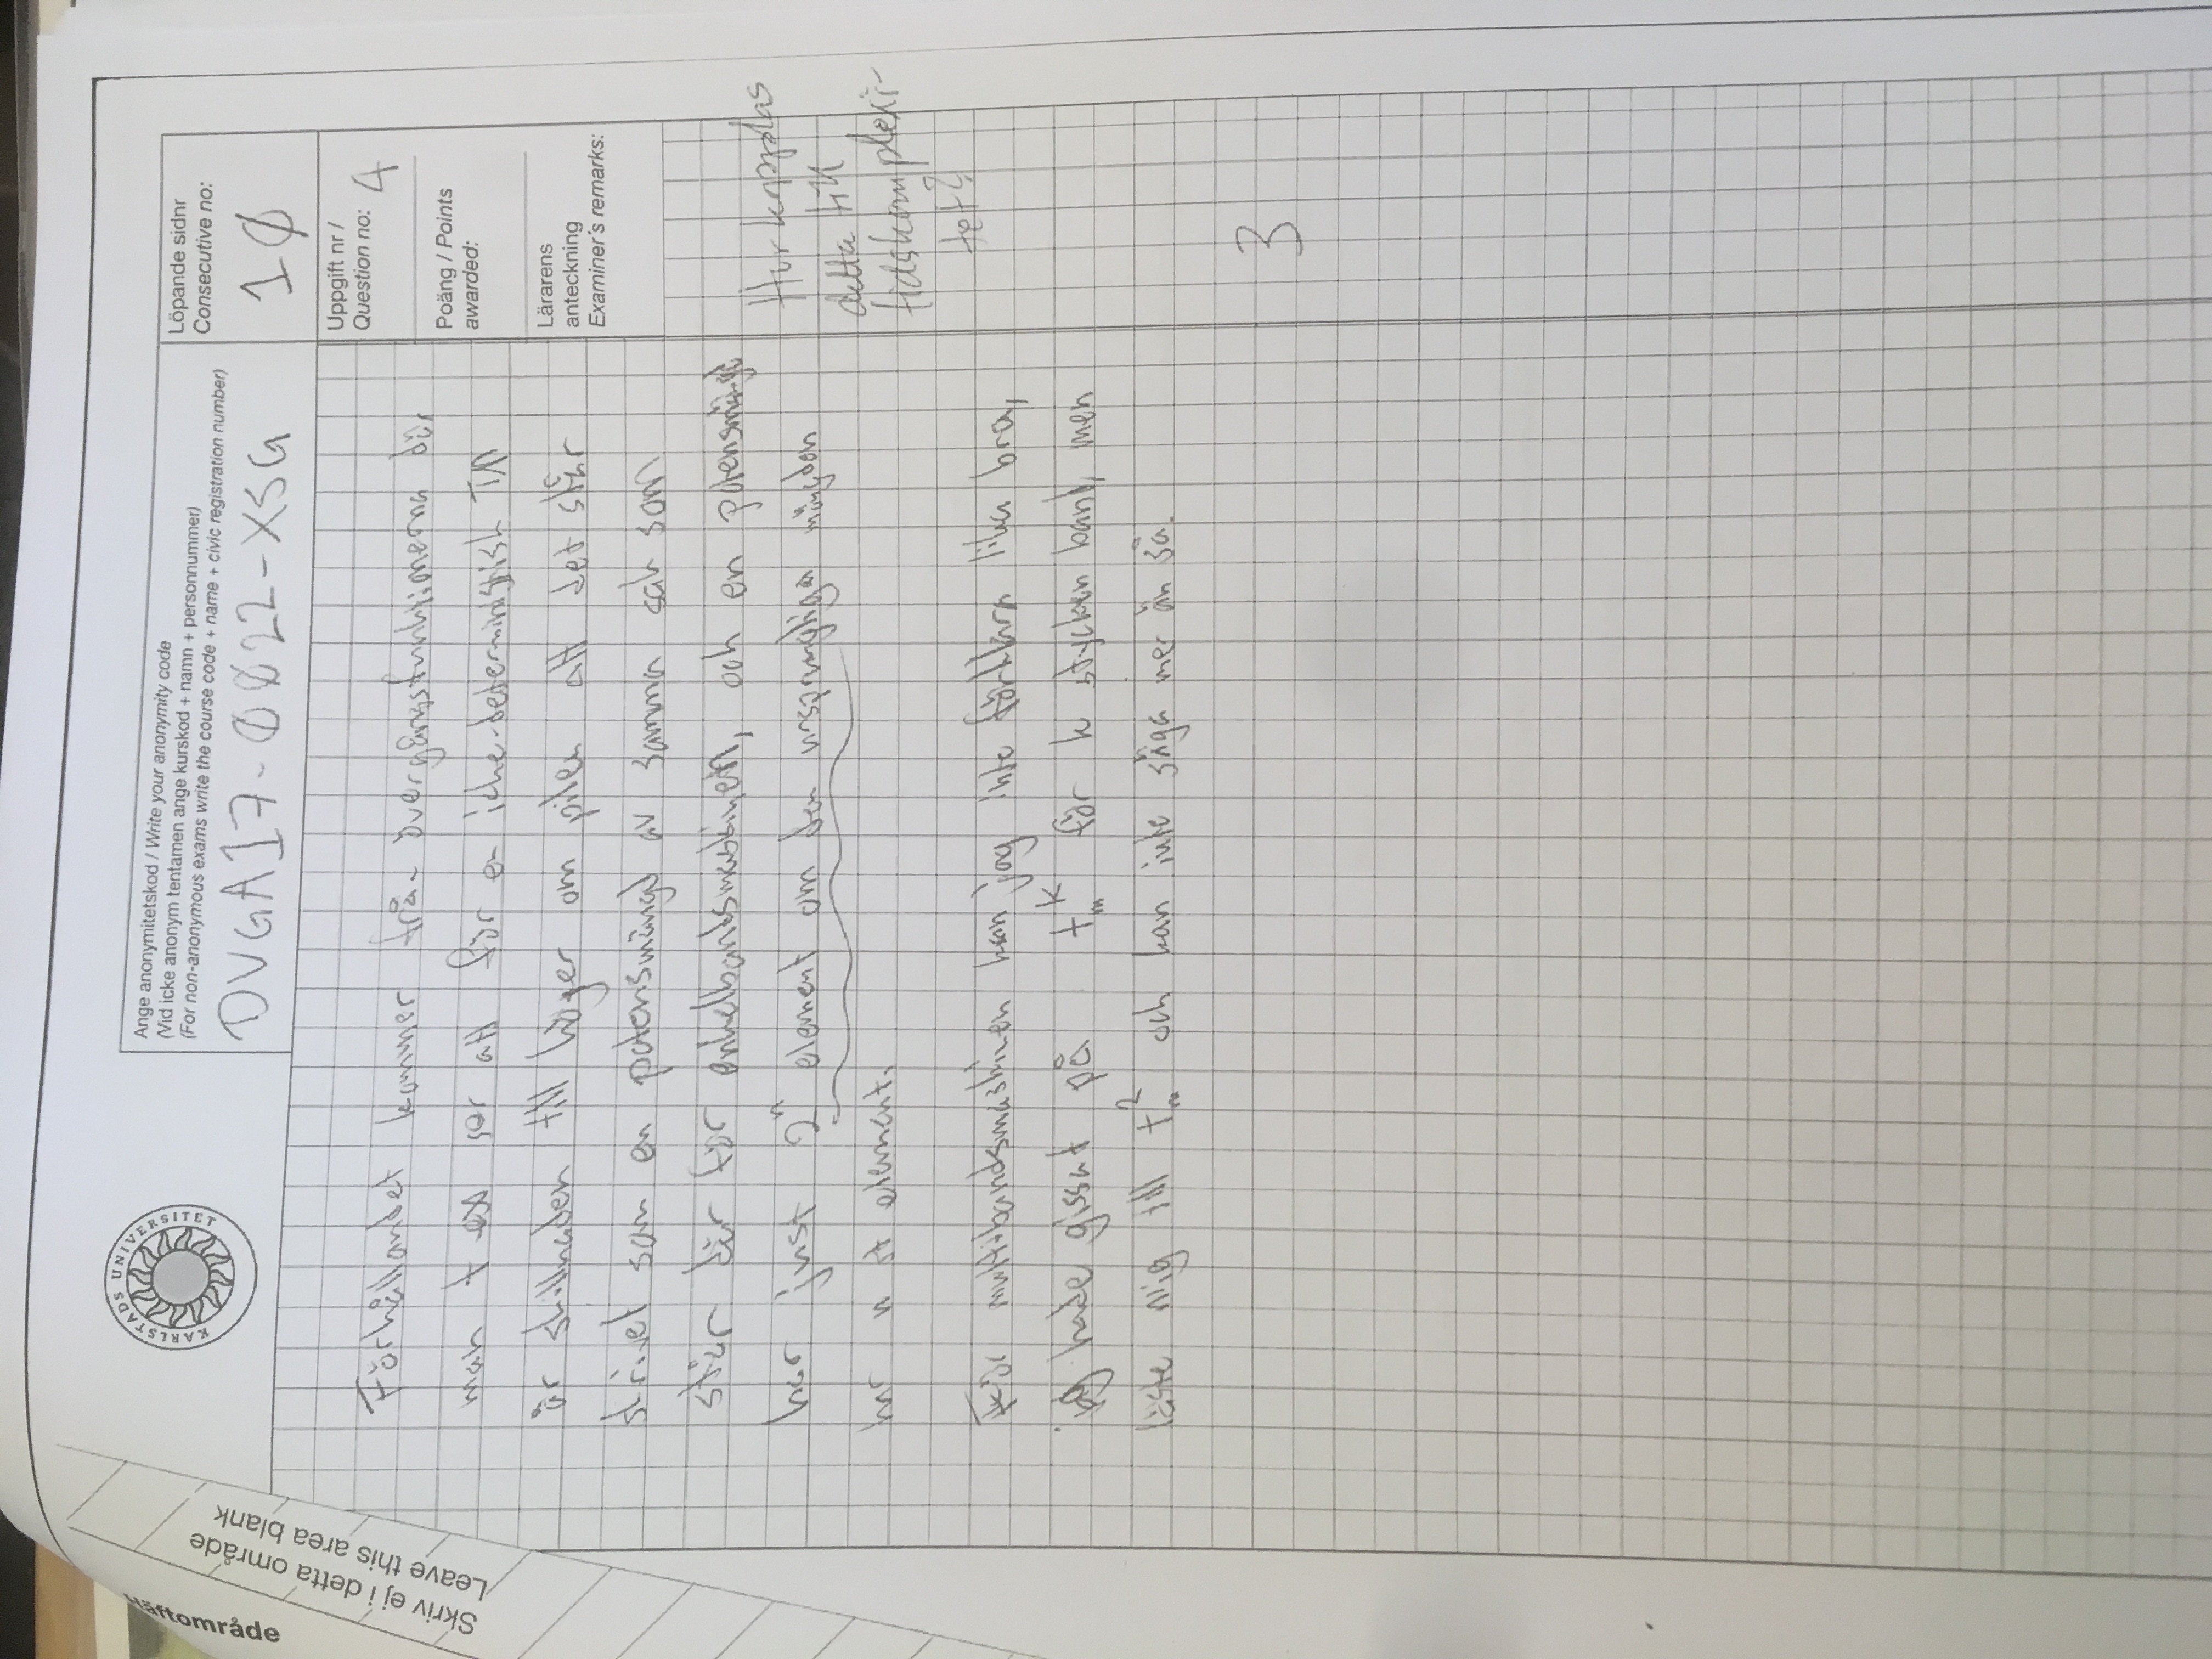 Häftområde
Skriv ej i detta område
Leave this area blank
KARLSTADS UNIVERSITET
Ange anonymitetskod / Write your anonymity code
(Vid icke anonym tentamen ange kurskod + namn + personnummer)
(For non-anonymous exams write the course code + name + civic registration number)
DVGA17-0022-XSG
Löpande sidnr
Consecutive no:
10
Uppgift nr /
Question no: 4
Poäng / Points
awarded:
Lärarens
anteckning
Examiner's remarks:
Förhållandet kommer från övergångsfunktionerna där
man t ex ser att för en icke-deterministisk TM
är skillnaden till höger om pilen att det står
skrivet som en potensmängd av samma sak som
står där för enkelbandsmaskinen, och en potensmängd
har just 2^n element om den ursprungliga mängden
har n st element.
För multibandsmaskinen kan jag inte förklara lika bra,
jag hade gissat på t_m^k för k stycken band, men
läste mig till t_m^2 och kan inte säga mer än så.
Hur kopplas
detta till
tidskomplexi-
tet?
3